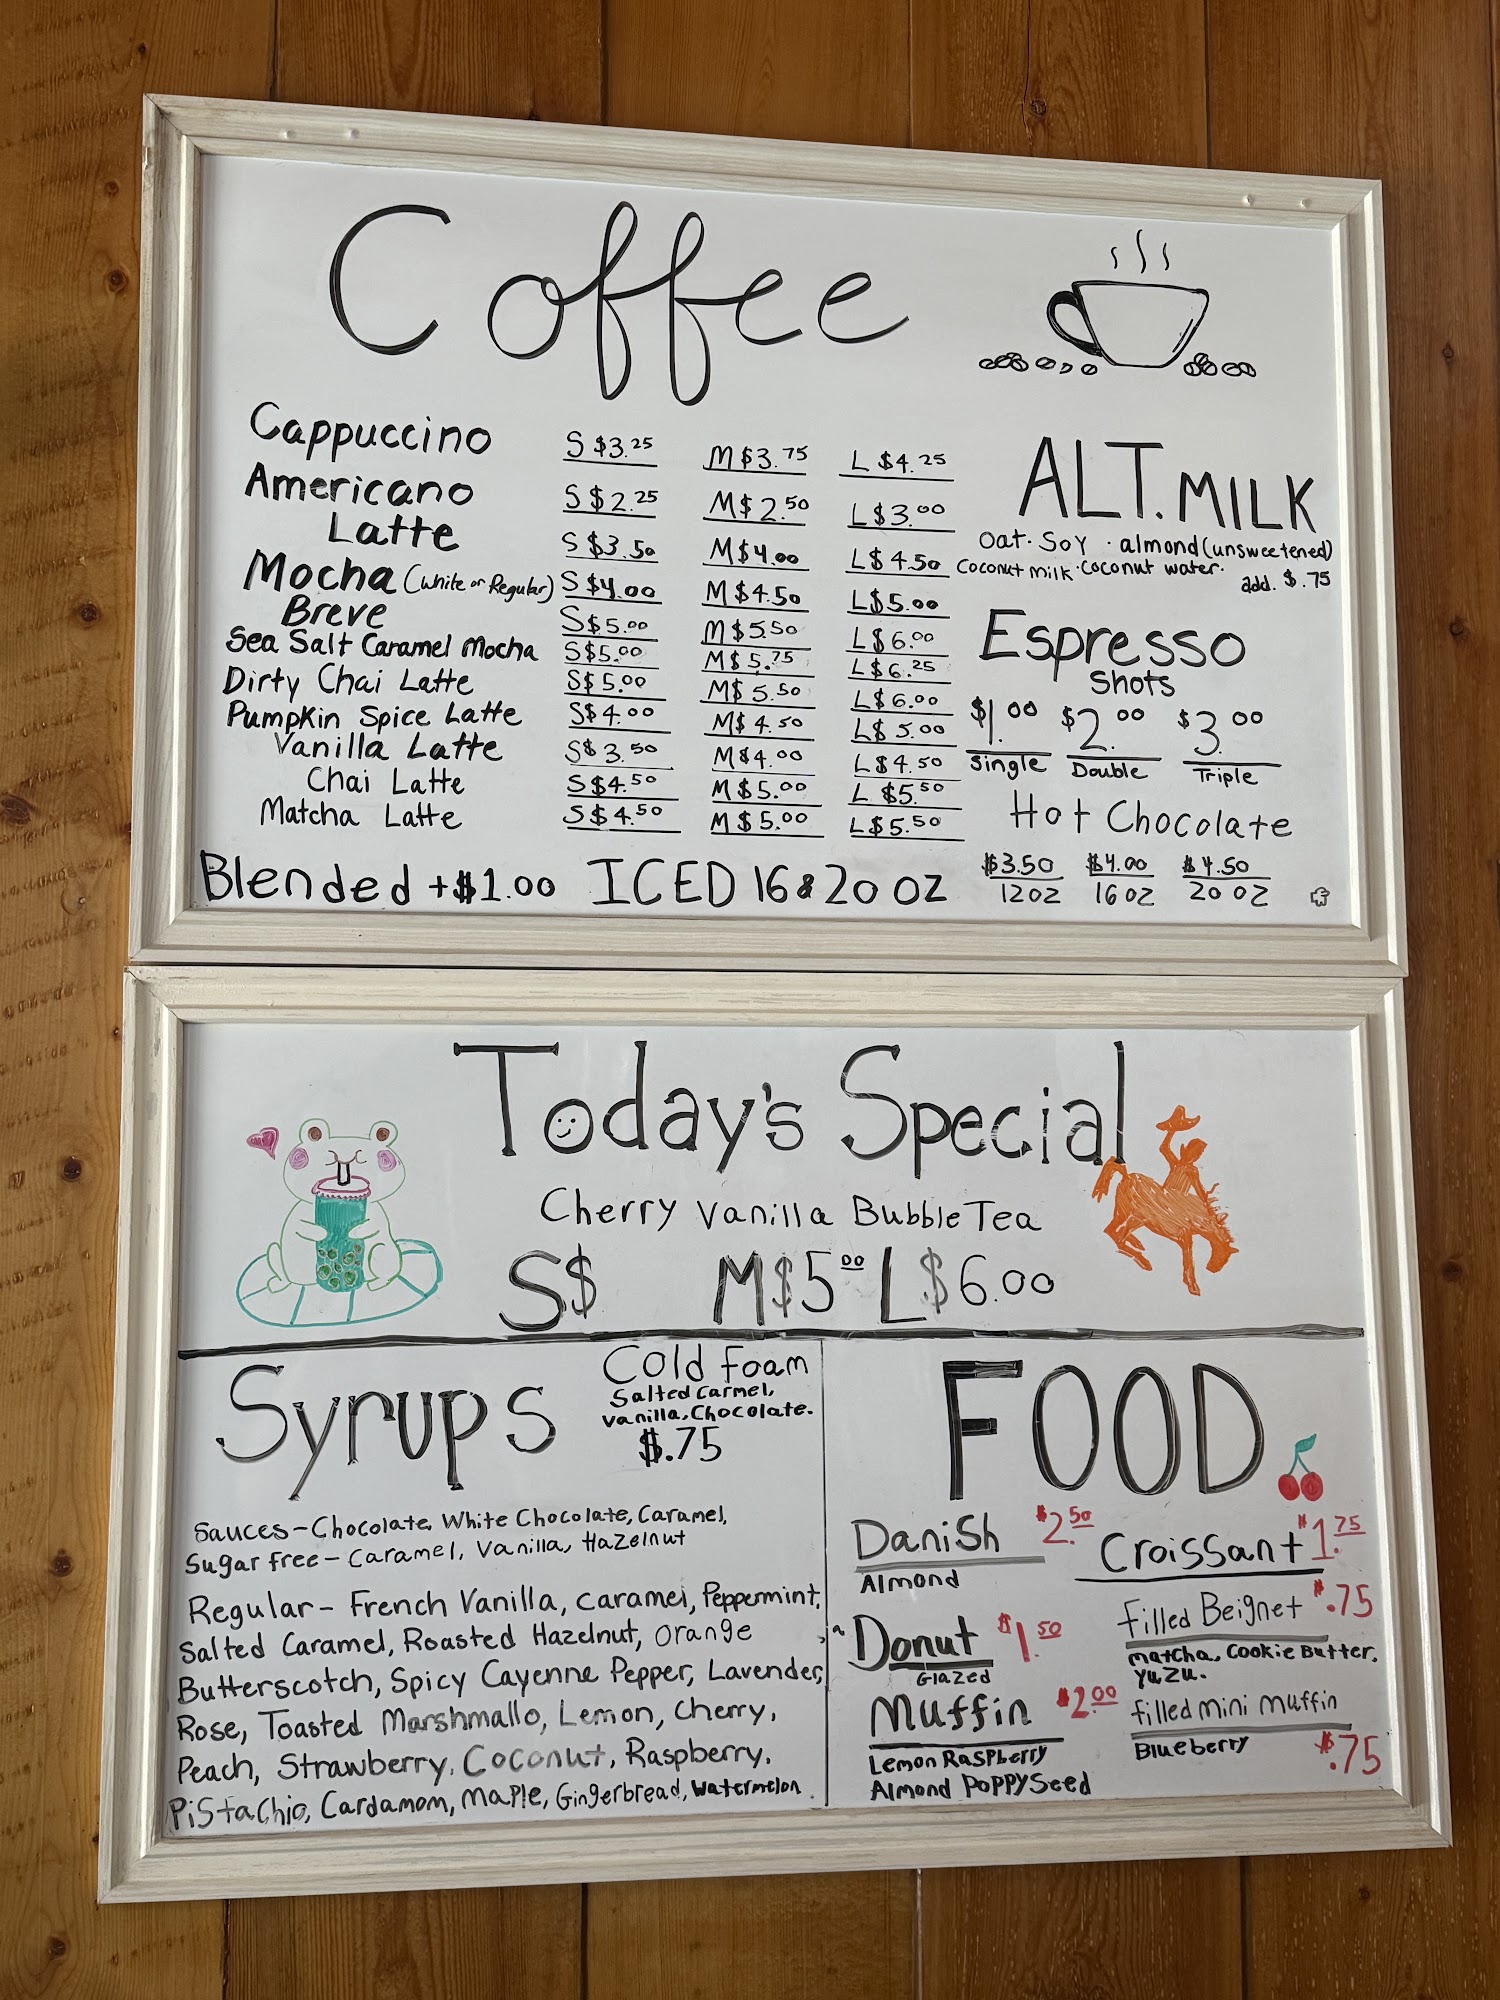 Coffee
Cappuccino S $3.25 M $3.75 L $4.25
Americano S $2.25 M $2.50 L $3.00
Latte S $3.50 M $4.00 L $4.50
Mocha (White or Regular) S $4.00 M $4.50 L $5.00
Breve S $5.00 M $5.50 L $6.00
Sea Salt Caramel Mocha S $5.00 M $5.75 L $6.25
Dirty Chai Latte S $5.00 M $5.50 L $6.00
Pumpkin Spice Latte S $4.00 M $4.50 L $5.00
Vanilla Latte S $3.50 M $4.00 L $4.50
Chai Latte S $4.50 M $5.00 L $5.50
Matcha Latte S $4.50 M $5.00 L $5.50
Blended +$1.00 ICED 16 & 20 OZ
ALT. MILK
Oat · Soy · almond (unsweetened)
Coconut milk · Coconut water.
add. $.75
Espresso
Shots
$1.00 $2.00 $3.00
Single Double Triple
Hot Chocolate
$3.50 $4.00 $4.50
12 OZ 16 OZ 20 OZ
Today's Special
Cherry Vanilla Bubble Tea
S$ M$5.00 L$6.00
Syrups
Cold Foam
Salted Carmel,
Vanilla, Chocolate.
$.75
Sauces - Chocolate, White Chocolate, Caramel,
Sugar free - Caramel, Vanilla, Hazelnut
Regular - French Vanilla, Caramel, Peppermint,
Salted Caramel, Roasted Hazelnut, Orange
Butterscotch, Spicy Cayenne Pepper, Lavender,
Rose, Toasted Marshmallo, Lemon, Cherry,
Peach, Strawberry, Coconut, Raspberry,
Pistachio, Cardamom, Maple, Gingerbread, Watermelon
FOOD
Danish $2.50
Almond
Donut $1.50
Glazed
Muffin $2.00
Lemon Raspberry
Almond Poppy Seed
Croissant $1.75
Filled Beignet $.75
Matcha, Cookie Butter,
Yuzu.
Filled mini muffin
Blueberry $.75